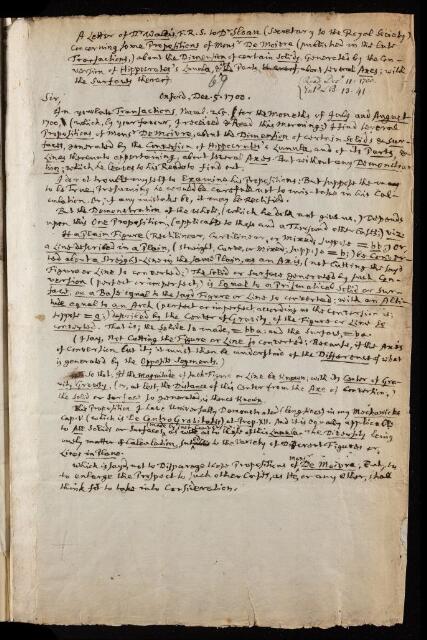 A Letter of Dr Wallis, F.R.S. to Dr Sloan (Secretary to the Royal Society)
Concerning some Propositions of Monsr De Moivre (published in the late
Transactions,) about the Dimension of certain Solids, Generated by the Con-
version of Hippocrates's Lunula, & its Parts, about several Axes; with
the Surfaces thereof.
Read Dec. 11. 1700.
Oxford, Dec. 5. 1700.
Sir,
In your late Transactions, Numb. 265. for the months of July and August
1700, (which, by your favour, I received & Read this Morning) I find several
Propositions of Monsr De Moivre, about the Dimension of certain Solids & Sur-
faces, generated by the Conversion of Hippocrates's Lunula, and of its Parts, &
Lines thereunto appertaining, about several Axes. But without any Demonstra-
tion; which he leaves to his Reader to find out.
I do not trouble myself to Examine his Propositions; But suppose them
to be True, Presuming he would be careful not to mistake in his Cal-
culation. Or, if any mistake be, it may be Rectified.
But the Demonstration of the whole, (which he doth not give us,) Depends
upon this One Proposition, (applicable to these and a Thousand other Cases;) viz.
If a Plain Figure (Rectilinear, Curvilinear, or Mixed, suppose = bb;) Or,
a Line described in a Plain, (Straight, Curve, or Mixed, suppose = b;) be Conver-
ted about a Streight Line in the same Plain, as an Axis, (not Cutting the sayd
Figure or Line so converted;) The Solid or Surface generated by such Con-
version (perfect or imperfect,) is Equal to a Prismatical Solid or Sur-
face, on a Base equal to the sayd Figure or Line so converted; with an Alti-
tude equal to an Arch (perfect or imperfect according as the Conversion is;
suppose = a;) described by the Center of Gravity, of the Figure or Line so
converted. That is; the Solide so made, = bba: and the Surface, = ba.
(I say, Not Cutting the Figure or Line so converted; Because, if the Axis
of Conversion cut it; it must then be understood of the Difference of what
is generated by the Opposite Segments.)
So that, If the Magnitude of such Figure or Line be Known, with its Center of Gra-
vity Gravity, (or, at lest, the Distance of this Center from the Axe of Conversion,)
the Solid or Surface so generated, is thence Known.
This Proposition I have Universally Demonstrated (long since) in my Mechanicks
Cap. V (which is De Centro Gravitatis) at Prop. XII. And it is equally applicable
to all Solids or Surfaces so made, as well as those of this Lunula: The Diversity being
onely matter of Calculation, suited to the Variety of Different Figures or
Lines in Plano.
Which is sayd not to Disparage those Propositions of Monsr De Moivre, But, so
to enlarge the Prospect to such other Cases, as He, or any other, shall
think fit to take into Consideration.